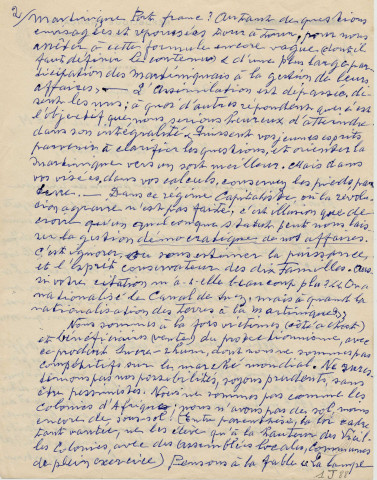 2/
Martinique Etat franc ? Autant de questions
envisagées et repoussées tour à tour, pour nous
arrêter à cette formule encore vague (dont il
faut définir le contenu) d'une plus large par-
ticipation des martiniquais à la gestion de leurs
affaires. — L'assimilation est dépassée, di-
sent les uns ; à quoi d'autres répondent que c'est
l'objectif que nous serions heureux d'atteindre
dans son intégralité. Puissent vos jeunes esprits
parvenir à clarifier les questions, et orienter la
Martinique vers un sort meilleur. Mais dans
vos visées, dans vos calculs, conservez les pieds par
terre. — Dans ce régime capitaliste, où la révolu-
tion agraire n'est pas faite, c'est illusion que de
croire qu'un quelconque statut peut nous lais-
ser la gestion démocratique de nos affaires.
C'est ignorer, ou sous-estimer la puissance
et l'esprit conservateur des dix familles. Aus-
si votre citation m'a-t-elle beaucoup plu : "On a
nationalisé le Canal de Suez, mais à quand la
nationalisation des terres à la Martinique ?"
Nous sommes à la fois victimes (côté achat)
et bénéficiaires (vente) du protectionnisme, avec
ce produit sucre-rhum, dont nous ne sommes pas
compétitifs sur le marché mondial. Ne
possibilités, soyons prudents, sans
être pessimistes. Nous ne sommes pas comme les
colonies d'Afrique ; nous n'avons pas de sol, nous
encore de sous-sol. (Entre parenthèse, la loi cadre
tant vantée, ne les élève qu'à la hauteur des Vieil-
les Colonies, avec des assemblées locales, communes
de plein exercice) Pensons à la fable de la lampe
1 J 88